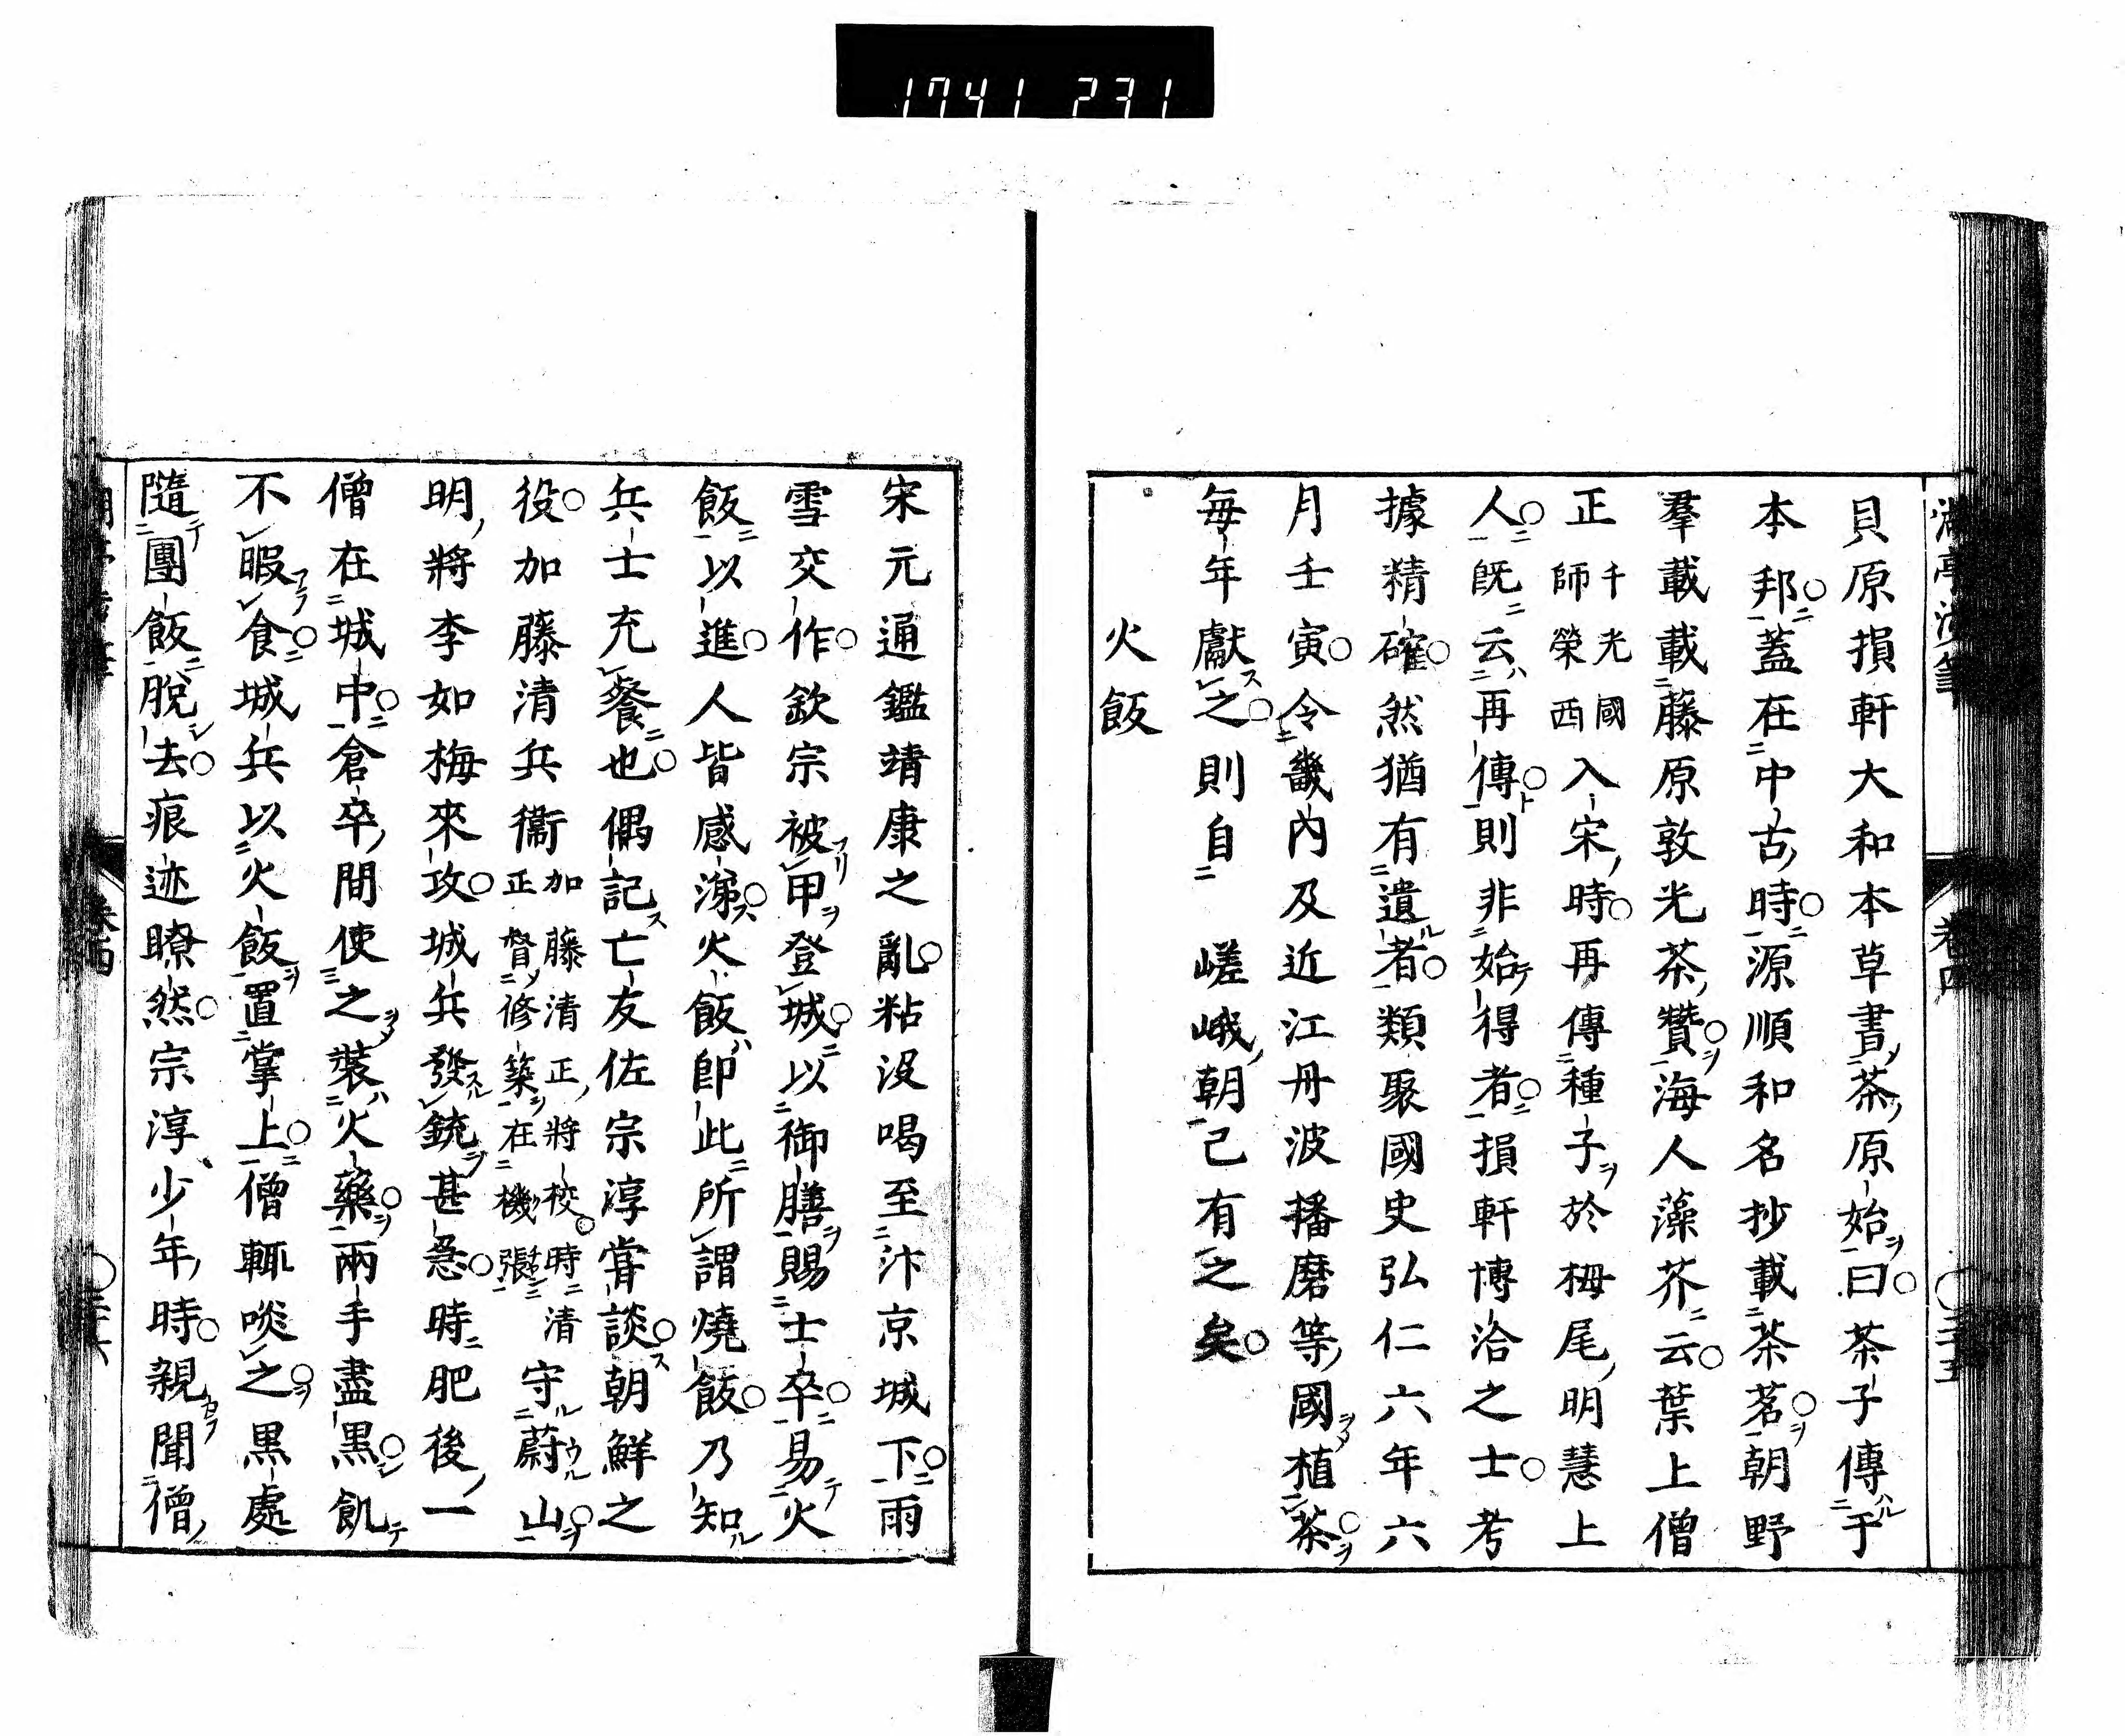 1741 231
湖亭渉筆
卷四
貝原損軒大和本草書茶原始曰茶子傳于
本邦蓋在中古時源順和名抄載茶茗朝野
羣載載藤原敦光茶贊海人藻芥云葉上僧
正千光國師榮西入宋時再傳種子於栂尾明慧上
人既云再傳則非始得者損軒博洽之士考
據精確然猶有遺者類聚國史弘仁六年六
月壬寅令畿內及近江丹波播磨等國植茶
每年獻之則自 嵯峨朝已有之矣
火飯
宋元通鑑靖康之亂粘沒喝至汴京城下雨
雪交作欽宗被甲登城以御膳賜士卒易火
飯以進人皆感涕火飯即此所謂燒飯乃知
兵士充餐也偶記亡友佐宗淳甞談朝鮮之
役加藤清兵衞加藤清正將校時清正督修築在機張守蔚山
明將李如梅來攻城兵發銃甚急時肥後一
僧在城中倉卒間使之裝火藥兩手盡黑飢
不暇食城兵以火飯置掌上僧輒啖之黑處
隨團飯脫去痕迹瞭然宗淳少年時親聞僧